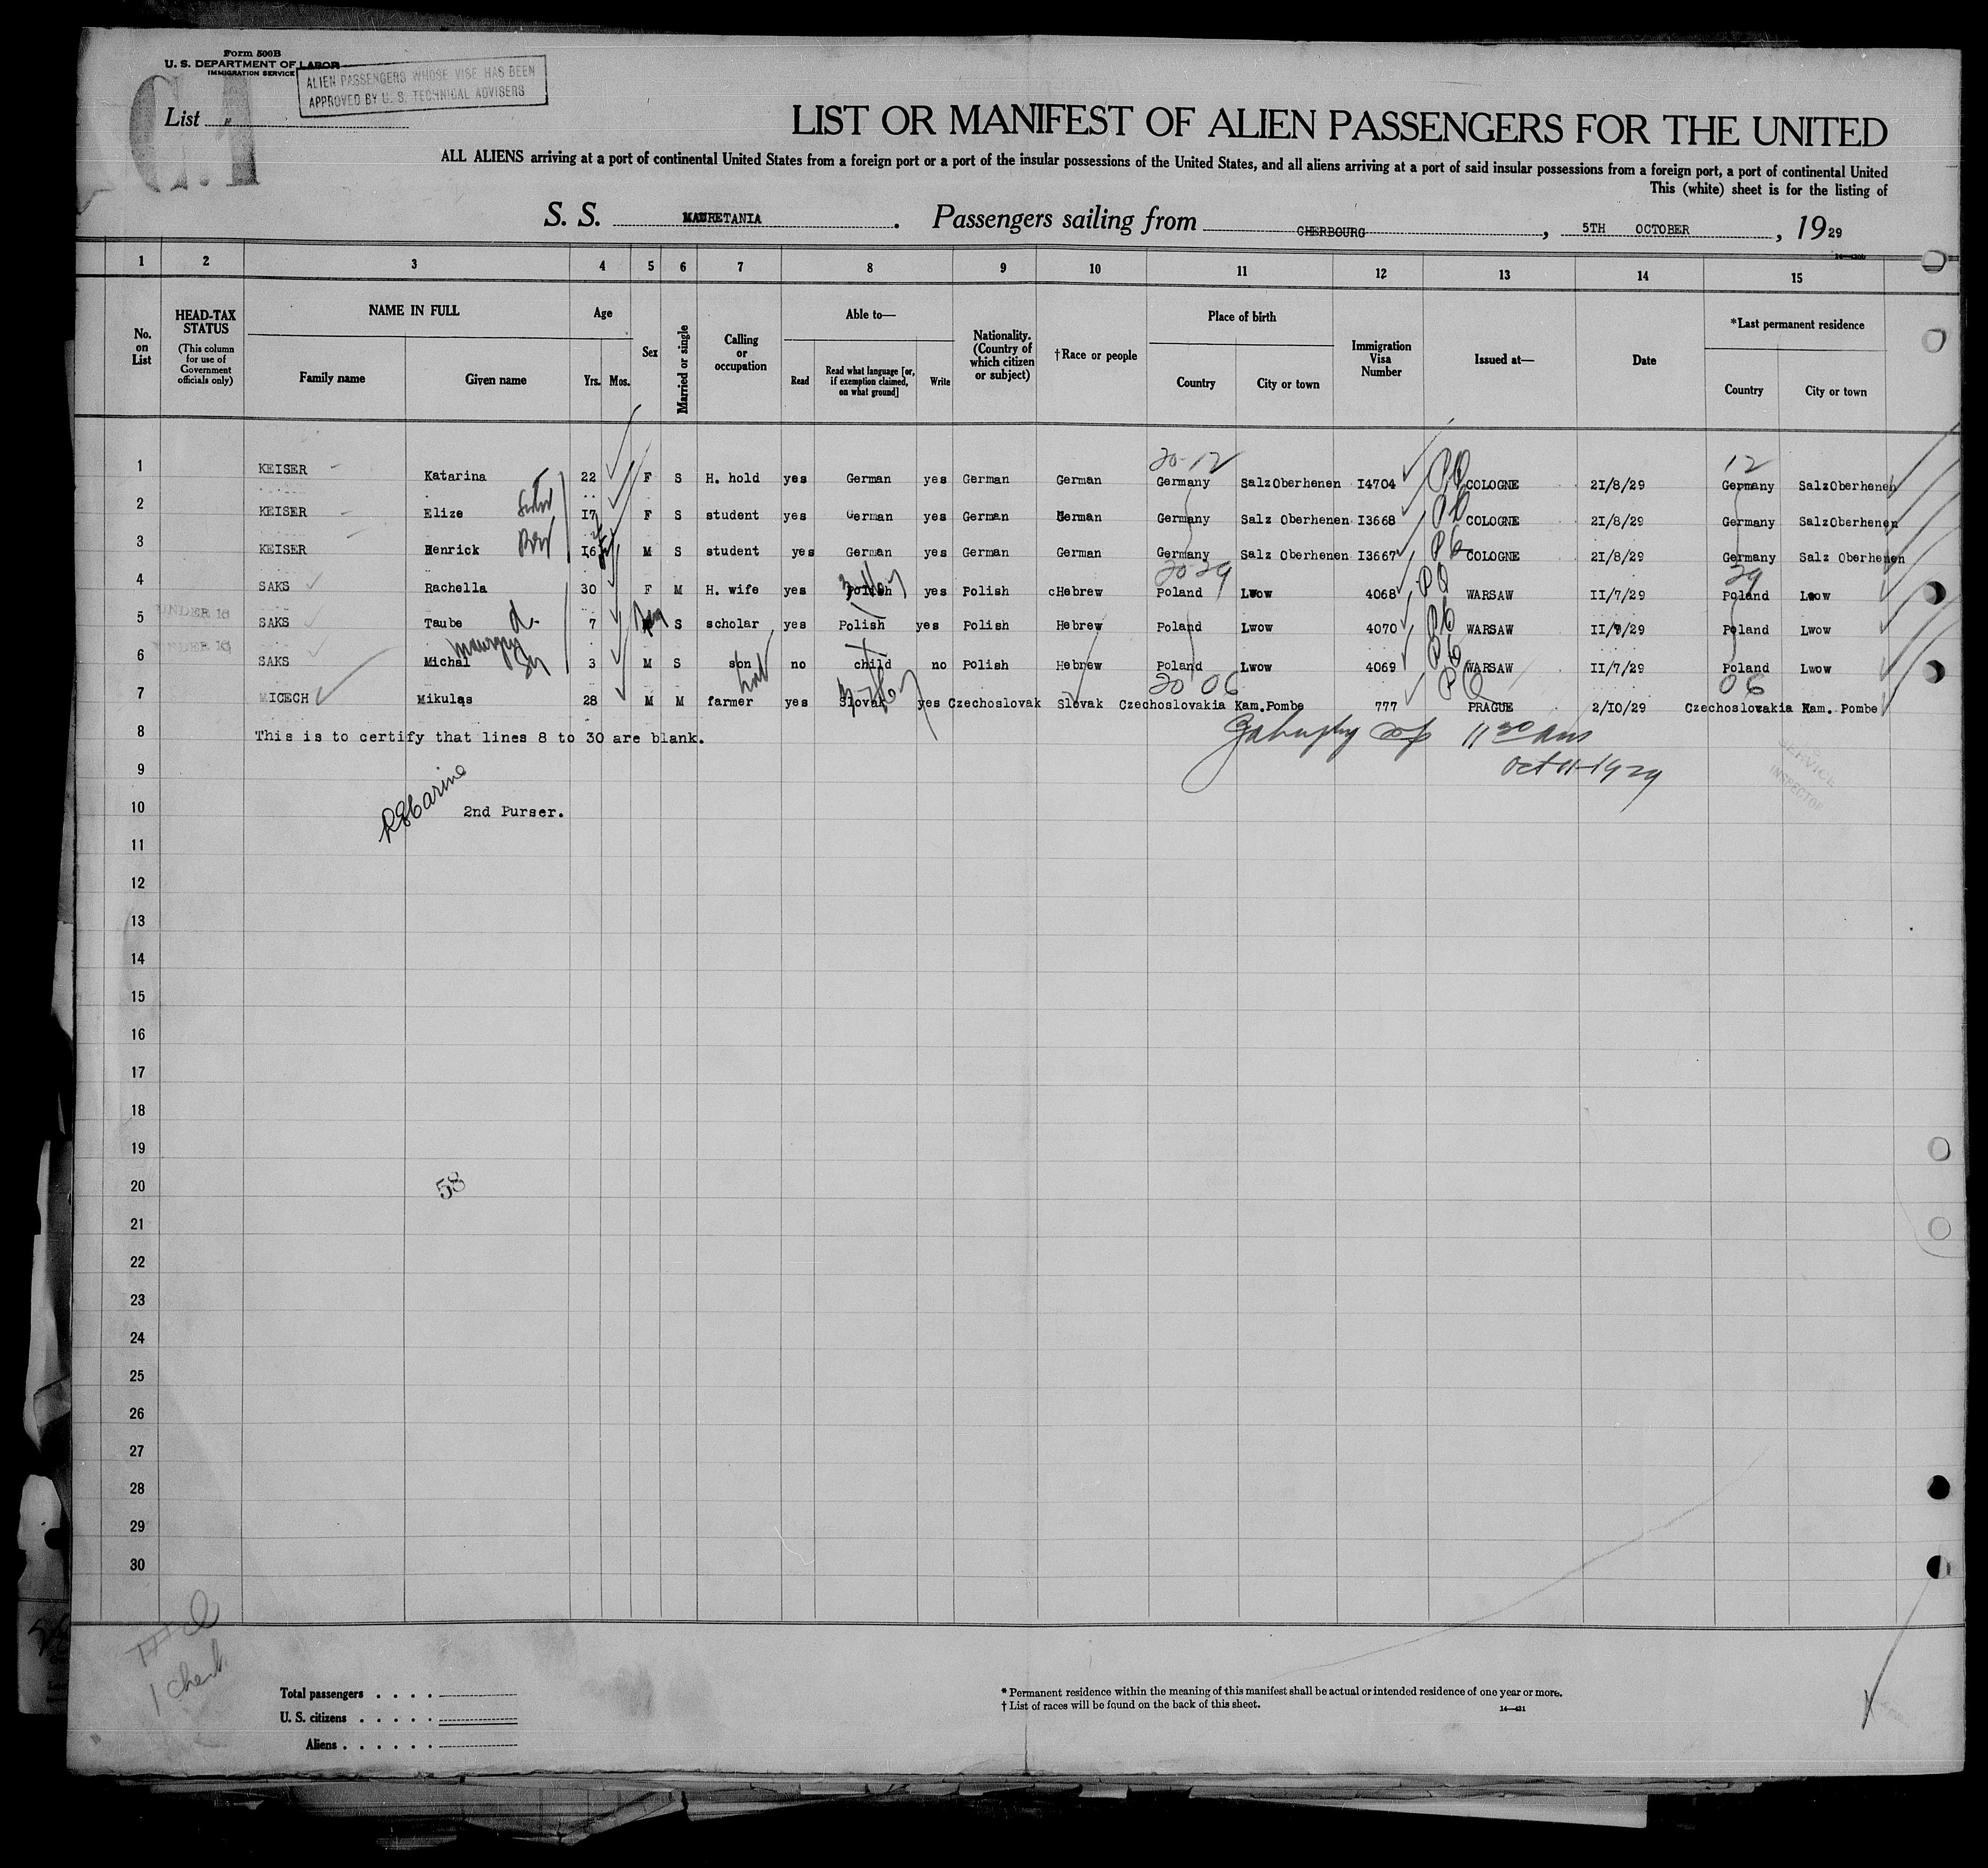 Form 500B
U. S. DEPARTMENT OF LABOR
IMMIGRATION SERVICE
ALIEN PASSENGERS WHOSE VISE HAS BEEN
APPROVED BY U. S. TECHNICAL ADVISERS
List
LIST OR MANIFEST OF ALIEN PASSENGERS FOR THE UNITED
ALL ALIENS arriving at a port of continental United States from a foreign port or a port of the insular possessions of the United States, and all aliens arriving at a port of said insular possessions from a foreign port, a port of continental United
This (white) sheet is for the listing of
S. S. MAURETANIA. Passengers sailing from CHERBOURG, 5TH OCTOBER, 1929
1 2 3 4 5 6 7 8 9 10 11 12 13 14 15
No. on List
HEAD-TAX STATUS (This column for use of Government officials only)
NAME IN FULL Family name Given name
Age Yrs. Mos.
Sex
Married or single
Calling or occupation
Able to— Read Read what language [or, if exemption claimed, on what ground] Write
Nationality. (Country of which citizen or subject)
†Race or people
Place of birth Country City or town
Immigration Visa Number
Issued at—
Date
*Last permanent residence Country City or town
20-12 12
1 KEISER Katarina 22 F S H. hold yes German yes German German Germany SalzOberhenen I4704 COLOGNE 2I/8/29 Germany SalzOberhenen
2 KEISER Elize I7 F S student yes German yes German German Germany Salz Oberhenen I3668 COLOGNE 2I/8/29 Germany SalzOberhenen
3 KEISER Henrick I6 M S student yes German yes German German Germany Salz Oberhenen I3667 COLOGNE 2I/8/29 Germany Salz Oberhenen
20-29 29
4 SAKS Rachella 30 F M H. wife yes Polish yes Polish cHebrew Poland Lwow 4068 WARSAW II/7/29 Poland Lwow
UNDER 16
5 SAKS Taube 7 S scholar yes Polish yes Polish Hebrew Poland Lwow 4070 WARSAW II/7/29 Poland Lwow
UNDER 16
6 SAKS Michal 3 M S son no child no Polish Hebrew Poland Lwow 4069 WARSAW II/7/29 Poland Lwow
20 06 06
7 MICECH Mikulas 28 M M farmer yes Slovak yes Czechoslovak Slovak Czechoslovakia Kam.Pombe 777 PRAGUE 2/IO/29 Czechoslovakia Kam. Pombe
8 This is to certify that lines 8 to 30 are blank.
11 30 am
9 Oct 11-1929
SERVICE
INSPECTOR
10 2nd Purser.
11
12
13
14
15
16
17
18
19
20 58
21
22
23
24
25
26
27
28
29
30
1 check
Total passengers . . . .
U. S. citizens . . . . .
Aliens . . . . . .
* Permanent residence within the meaning of this manifest shall be actual or intended residence of one year or more.
† List of races will be found on the back of this sheet.
14—431